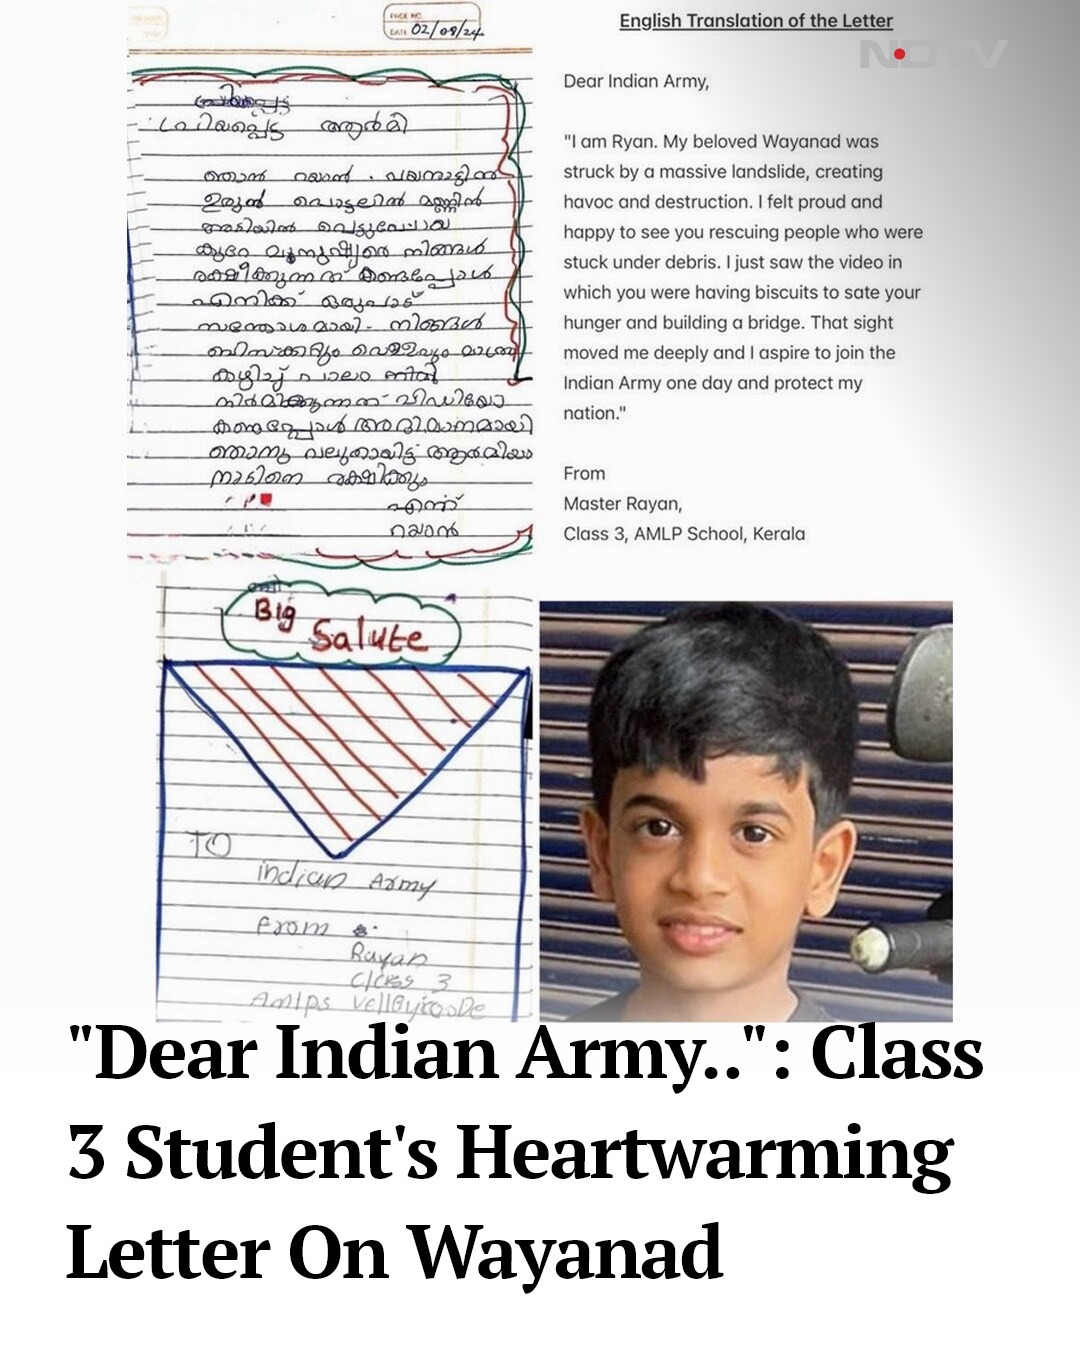 PAGE NO.
DATE 02/08/24
പ്രിയപ്പെട്ട ആർമി
ഞാൻ റയാൻ. വയനാട്ടിൽ
ഉരുൾ പൊട്ടലിൽ മണ്ണിൻ
അടിയിൽ പെട്ടുപോയ
കുറേ മനുഷ്യരെ നിങ്ങൾ
രക്ഷിക്കുന്നത് കണ്ടപ്പോൾ
എനിക്ക് ഒരുപാട്
സന്തോശമായി. നിങ്ങൾ
ബിസ്ക്കറ്റും വെള്ളവും മാത്രം
കഴിച്ച് പാലം
നിർമിക്കുന്നത് വിഡിയോ
കണ്ടപ്പോൾ അഭിമാനമായി
ഞാനും വലുതായിട്ട് ആർമിയാ
നാടിനെ രക്ഷിക്കും
എന്ന്
റയാൻ
English Translation of the Letter
NDTV
Dear Indian Army,
"I am Ryan. My beloved Wayanad was
struck by a massive landslide, creating
havoc and destruction. I felt proud and
happy to see you rescuing people who were
stuck under debris. I just saw the video in
which you were having biscuits to sate your
hunger and building a bridge. That sight
moved me deeply and I aspire to join the
Indian Army one day and protect my
nation."
From
Master Rayan,
Class 3, AMLP School, Kerala
Big
Salute
TO
indian Army
From
Rayan
Class 3
Amlps
"Dear Indian Army..": Class
3 Student's Heartwarming
Letter On Wayanad